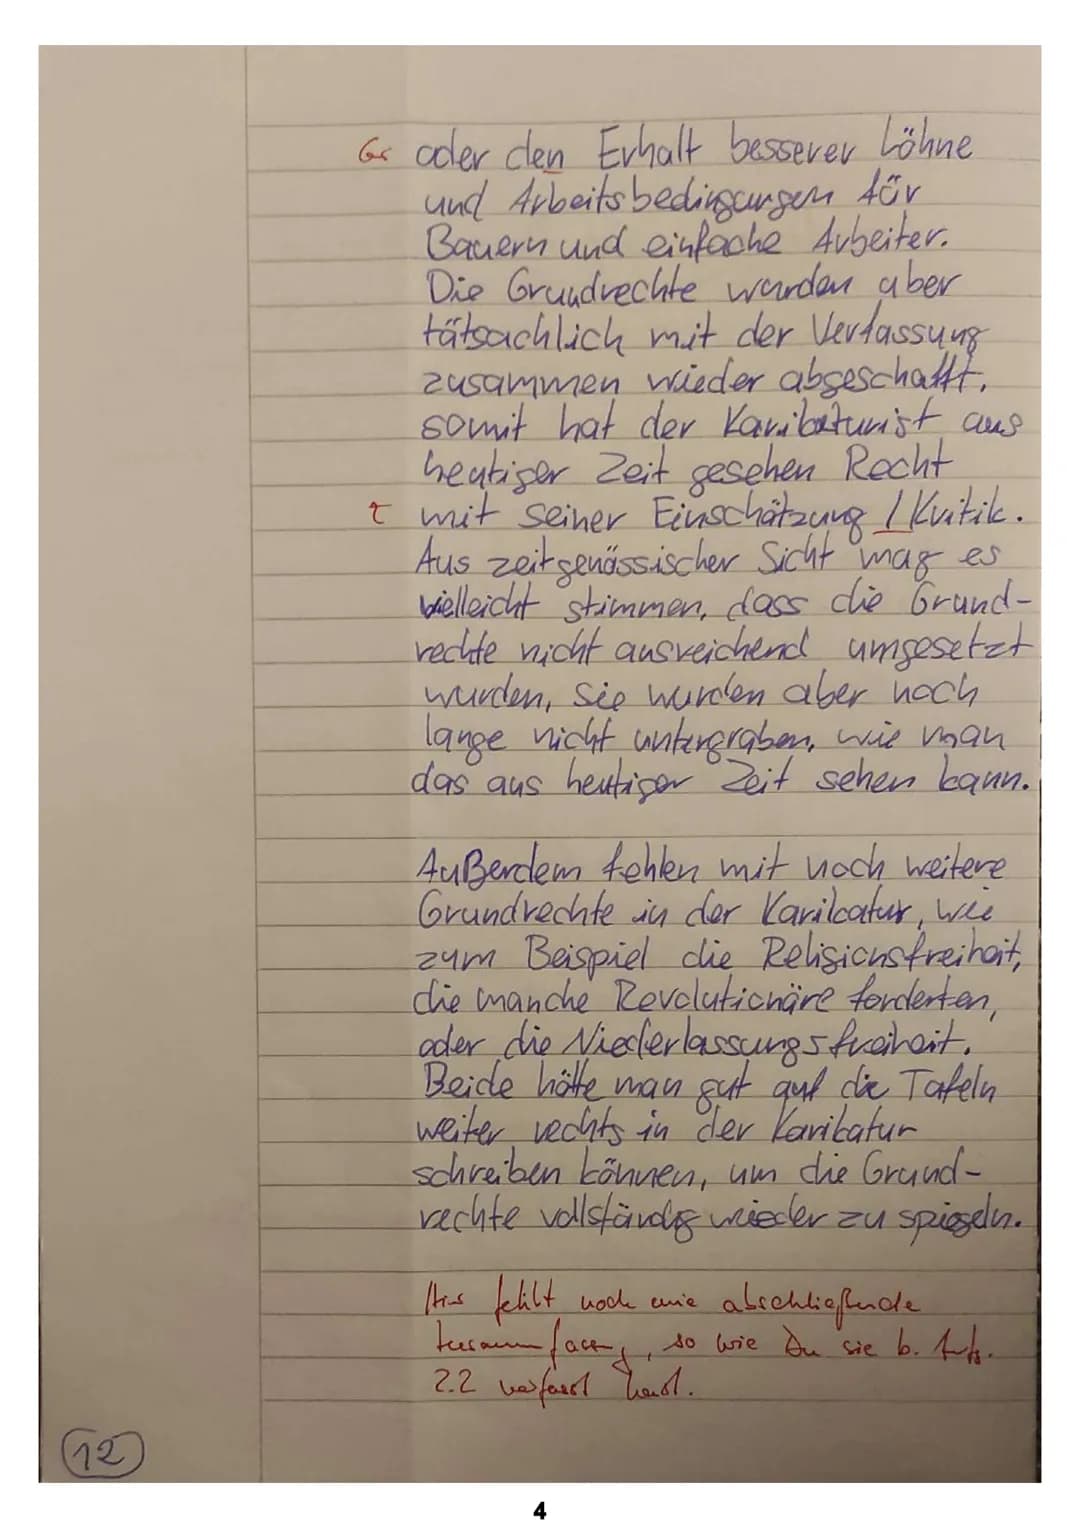 Gr oder den Erhalt besserer Löhne
und Arbeitsbedingungen für
Bauern und einfache Arbeiter.
Die Grundrechte wurden aber
tätsachlich mit der Verfassung
zusammen wieder abgeschafft,
somit hat der Karikaturist aus
heutiger Zeit gesehen Recht
mit seiner Einschätzung / Kritik.
Aus zeitgenössischer Sicht mag es
vielleicht stimmen, dass die Grund-
rechte nicht ausreichend umgesetzt
wurden, sie wurden aber noch
lange nicht untergraben, wie man
das aus heutiger Zeit sehen kann.
Außerdem fehlen mit noch weitere
Grundrechte in der Karikatur, wie
zum Beispiel die Religionsfreiheit,
die manche Revolutionäre forderten,
oder die Niederlassungsfreiheit.
Beide hätte man gut auf die Tafeln
weiter rechts in der Karikatur
schreiben können, um die Grund-
rechte vollständig wieder zu spiegeln.
Hier fehlt noch eine abschließende
Zusammenfassung, so wie Du sie b. Aufg.
2.2 verfasst hast.
12
4